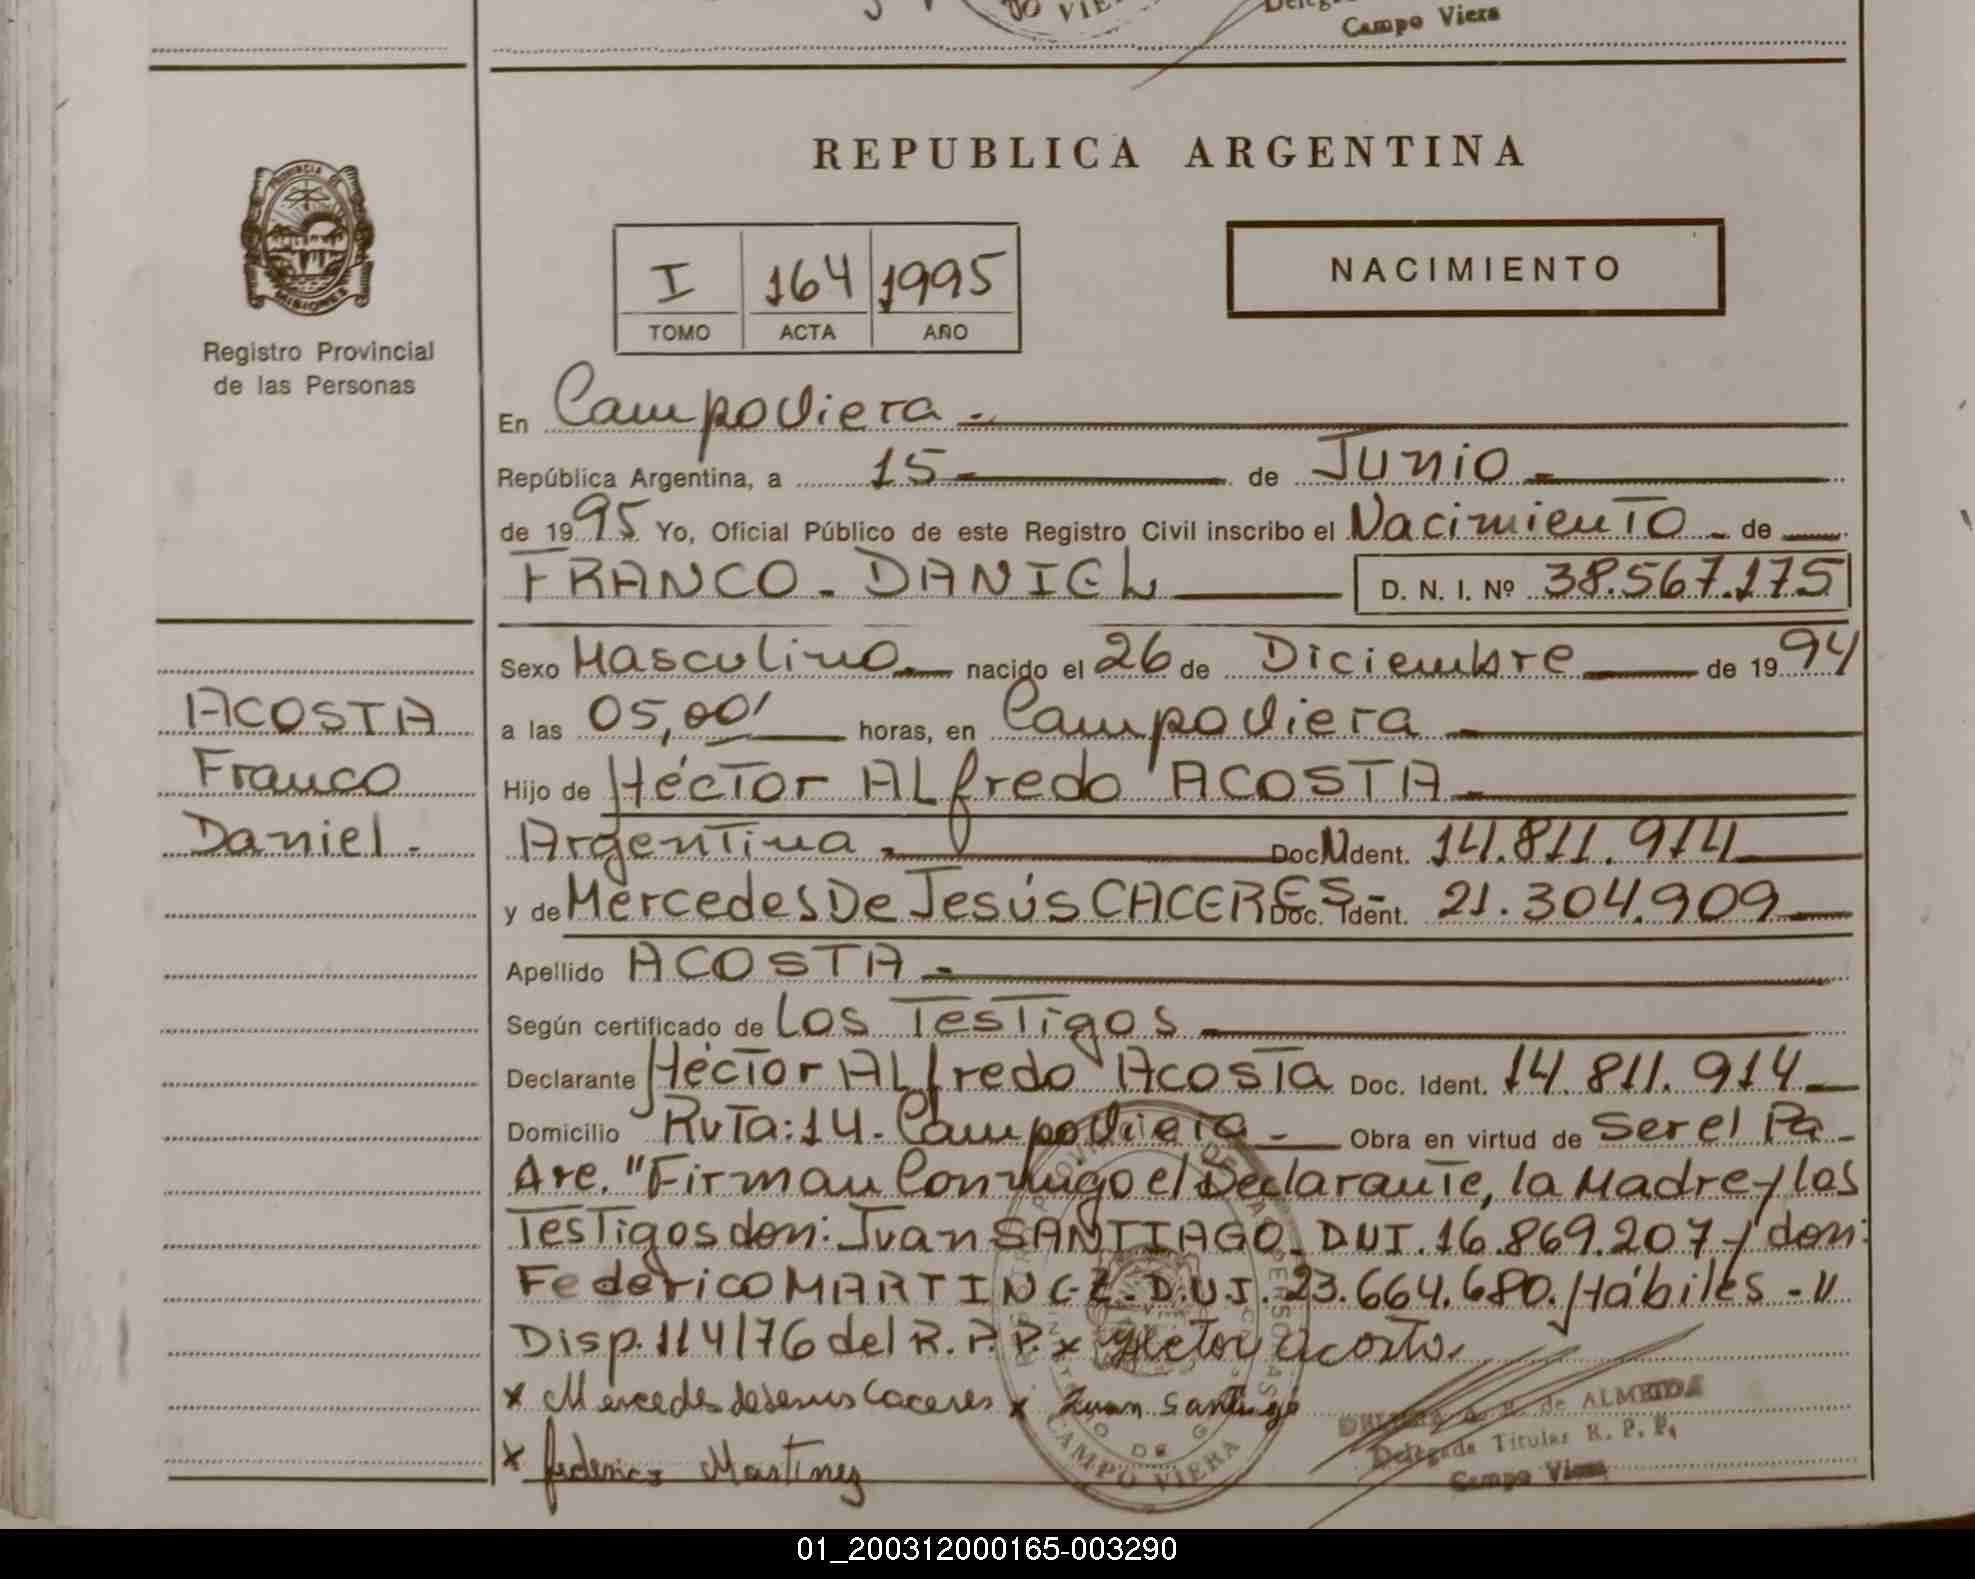 VIERA
Campo Viera
REPUBLICA ARGENTINA
PROVINCIA DE
MISIONES
Registro Provincial
de las Personas
I 164 1995
TOMO ACTA AÑO
NACIMIENTO
En Campo Viera.-
República Argentina, a 15 de Junio.-
de 1995. Yo, Oficial Público de este Registro Civil inscribo el Nacimiento - de
FRANCO - DANIEL
D. N. I. Nº 38.567.175
Sexo Masculino.- nacido el 26 de Diciembre de 1994
a las 05,00' horas, en Campo Viera
Hijo de Héctor ALfredo ACOSTA.-
Argentina.- Doc. Ident. 14.811.914
y de Mercedes De Jesús CACERES- Doc. Ident. 21.304.909
Apellido ACOSTA.-
Según certificado de Los Testigos
Declarante Héctor ALfredo Acosta Doc. Ident. 14.811.914
Domicilio Ruta: 14 - Campo Viera - Obra en virtud de Ser el Pa-
dre. "Firman Conmigo el Declarante, la Madre y los
Testigos don: Juan SANTIAGO - DNI. 16.869.207 y don:
Federico MARTINEZ - D.N.I. 23.664.680. Hábiles - "
Disp. 114/76 del R.P.P. x Hector Acosta
x Mercedes de Jesus Caceres x Juan Santiago
x Federico Martinez
ACOSTA
Franco
Daniel.-
CAMPO VIERA
de ALMEIDA
Delegada Titular R. P. P.
Campo Viera
01_200312000165-003290